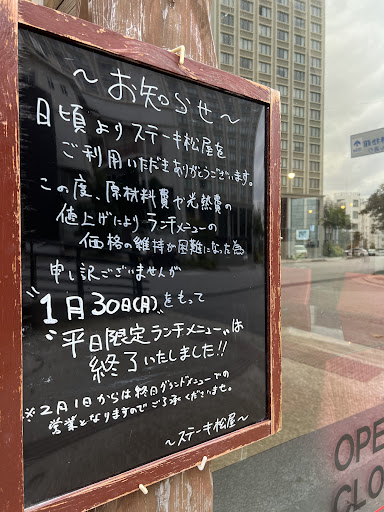 ～お知らせ～
日頃よりステーキ松屋を
ご利用いただきありがとうございます。
この度、原材料費や光熱費の
値上げによりランチメニューの
価格の維持が困難になった為
申し訳ございませんが
"1月30日(月)"をもって
"平日限定ランチメニュー"は
終了いたしました!!
※2月1日からは終日グランドメニューでの
営業となりますのでご了承くださいませ。
～ステーキ松屋～
OPE
CLO